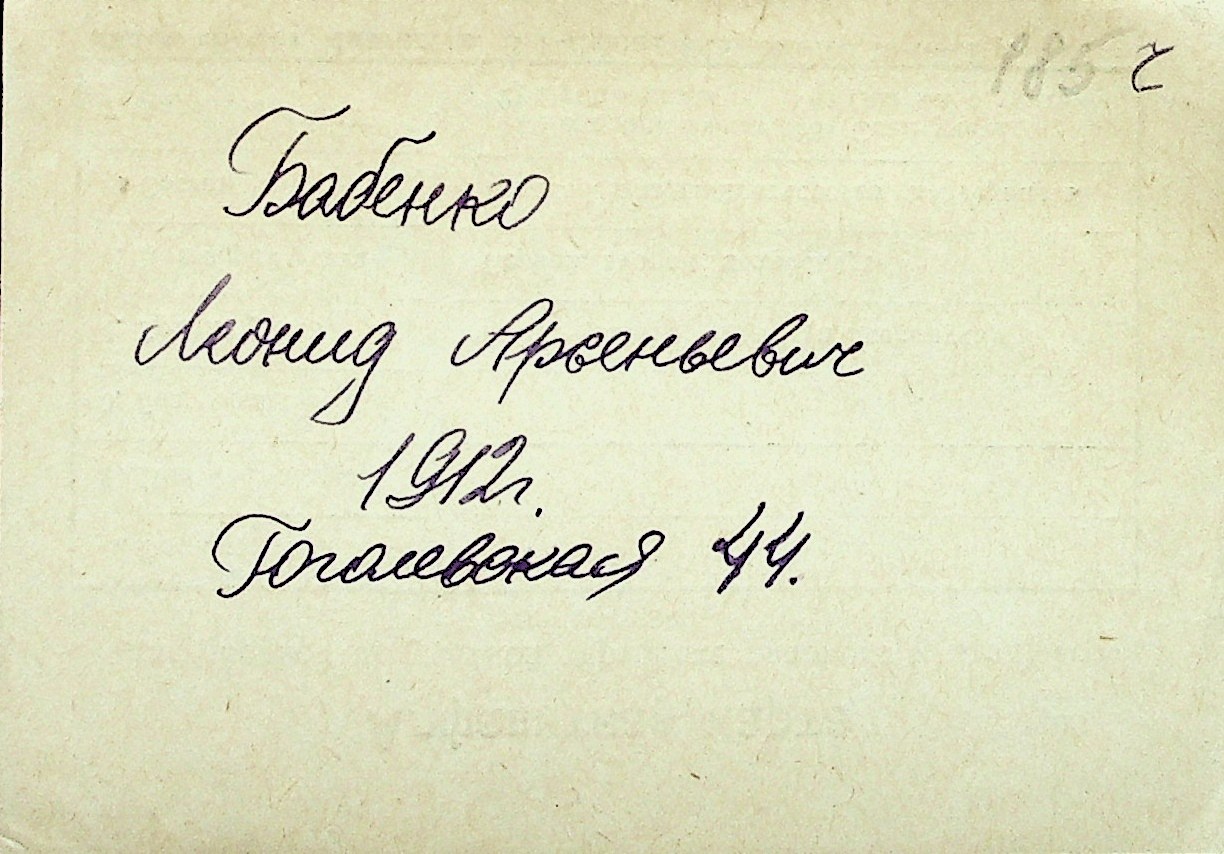 185 ч
Бабенко
Леонид Арсеньевич
1912г.
Гоголевская 44.